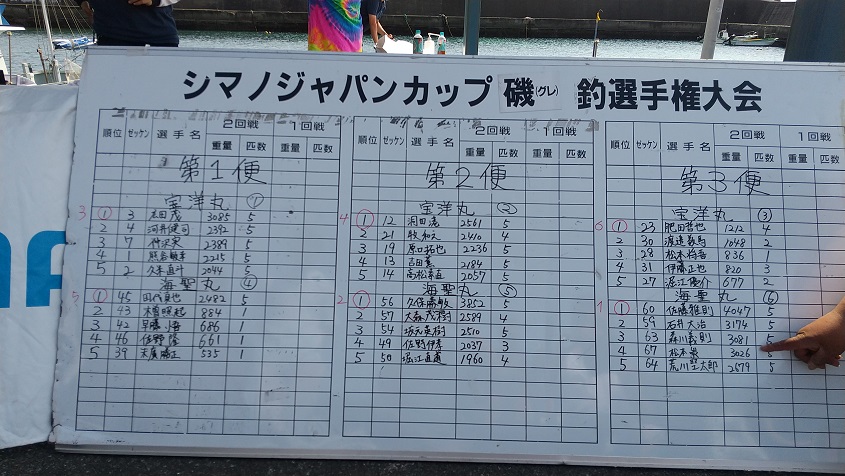 シマノジャパンカップ 磯(グレ) 釣選手権大会
順位 ゼッケン 選手名 2回戦 重量 匹数 1回戦 重量 匹数
第1便
宝洋丸 ①
3 ① 3 本田茂 3085 5
2 4 河井健司 2392 5
3 7 竹沢実 2389 5
4 1 熊谷敏幸 2215 5
5 2 久米直斗 2044 5
海聖丸 ④
5 ① 45 田内真也 2482 5
2 43 884 1
3 42 早藤 686 1
4 46 佐野隆 661 1
5 39 535 1
順位 ゼッケン 選手名 2回戦 重量 匹数 1回戦 重量 匹数
第2便
宝洋丸 ②
4 ① 12 2561 5
2 21 牧和人 2410 4
3 19 原口拓也 2236 5
4 13 吉田 2184 5
5 14 高松幸 2057 5
海聖丸 ⑤
2 ① 56 久保 3852 5
2 57 大森茂樹 2589 4
3 54 坂元英樹 2510 5
4 49 佐野伊孝 2037 3
5 50 堀江直道 1960 4
順位 ゼッケン 選手名 2回戦 重量 匹数 1回戦
第3便
宝洋丸 ③
6 ① 23 肥田哲也 1212 4
2 30 渡邉 1048 2
3 28 松本 836 1
4 31 伊藤正也 820 3
5 27 堀江優介 677 2
海聖丸 ⑥
1 ① 60 佐藤雅則 4047 5
2 59 石井大治 3174 5
3 63 森川義則 3081 5
4 67 松本 3026 5
5 64 荒川 太郎 2679 5